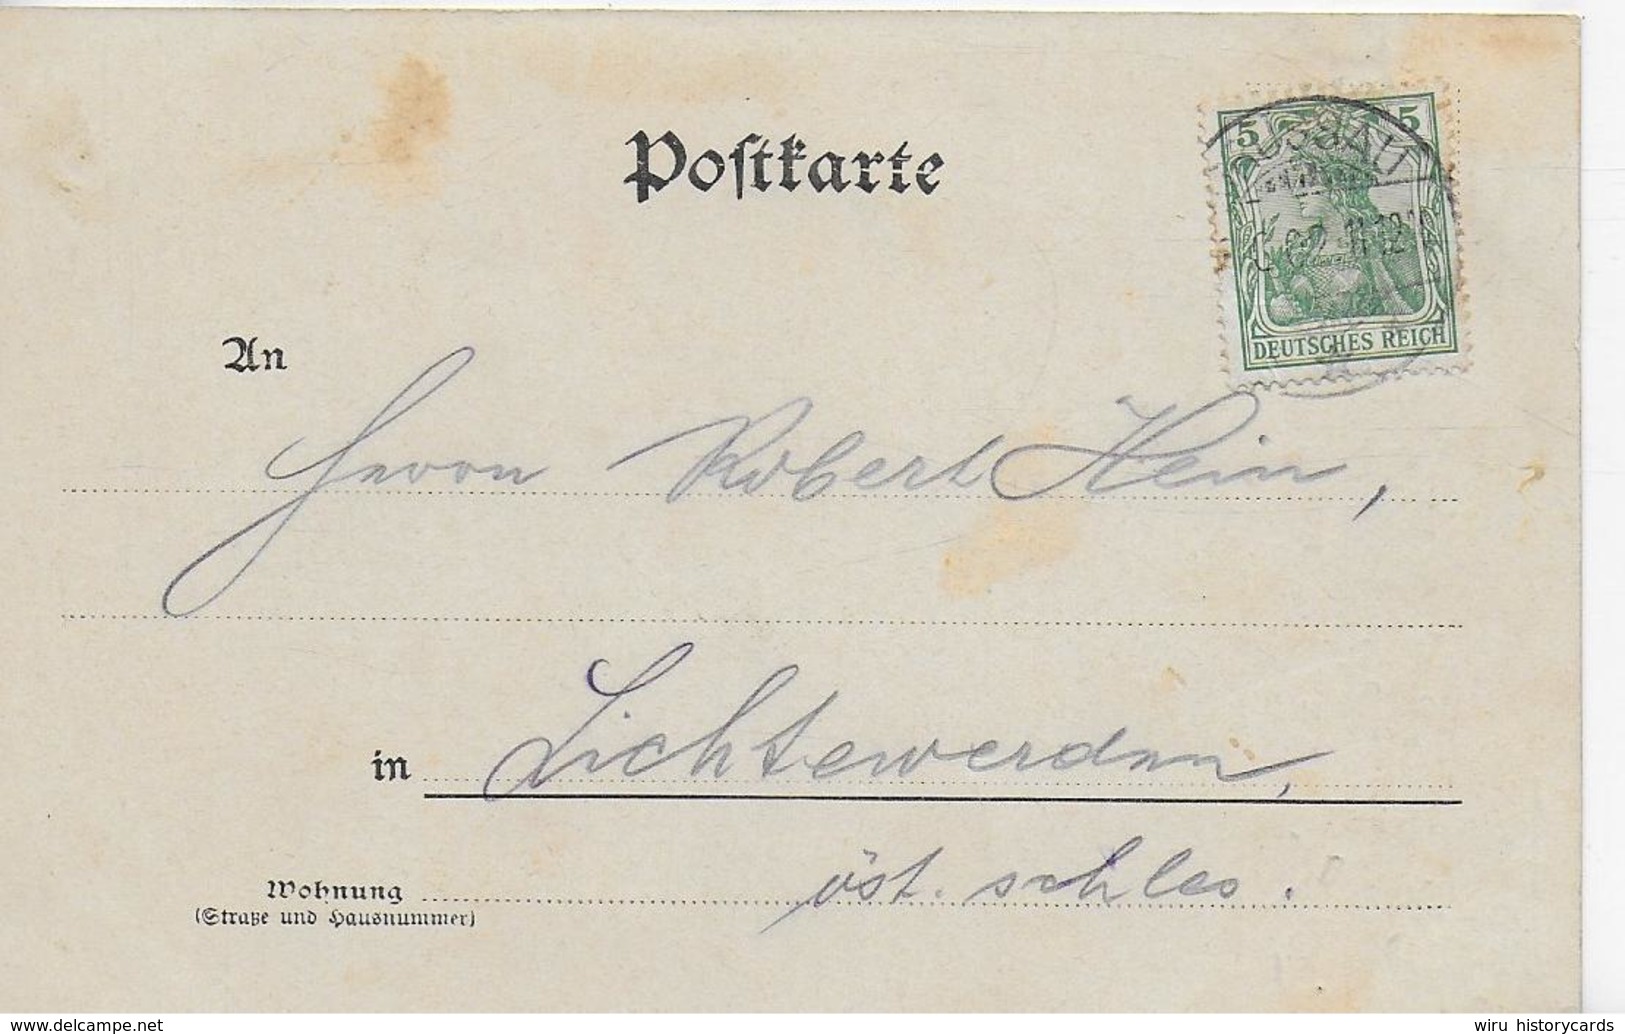 Postkarte
5 5
02 11-12
DEUTSCHES REICH
An
Herrn Robert Hein,
in Lichtewerden,
öst. schles.
Wohnung
(Straße und Hausnummer)
www.delcampe.net
wiru historycards